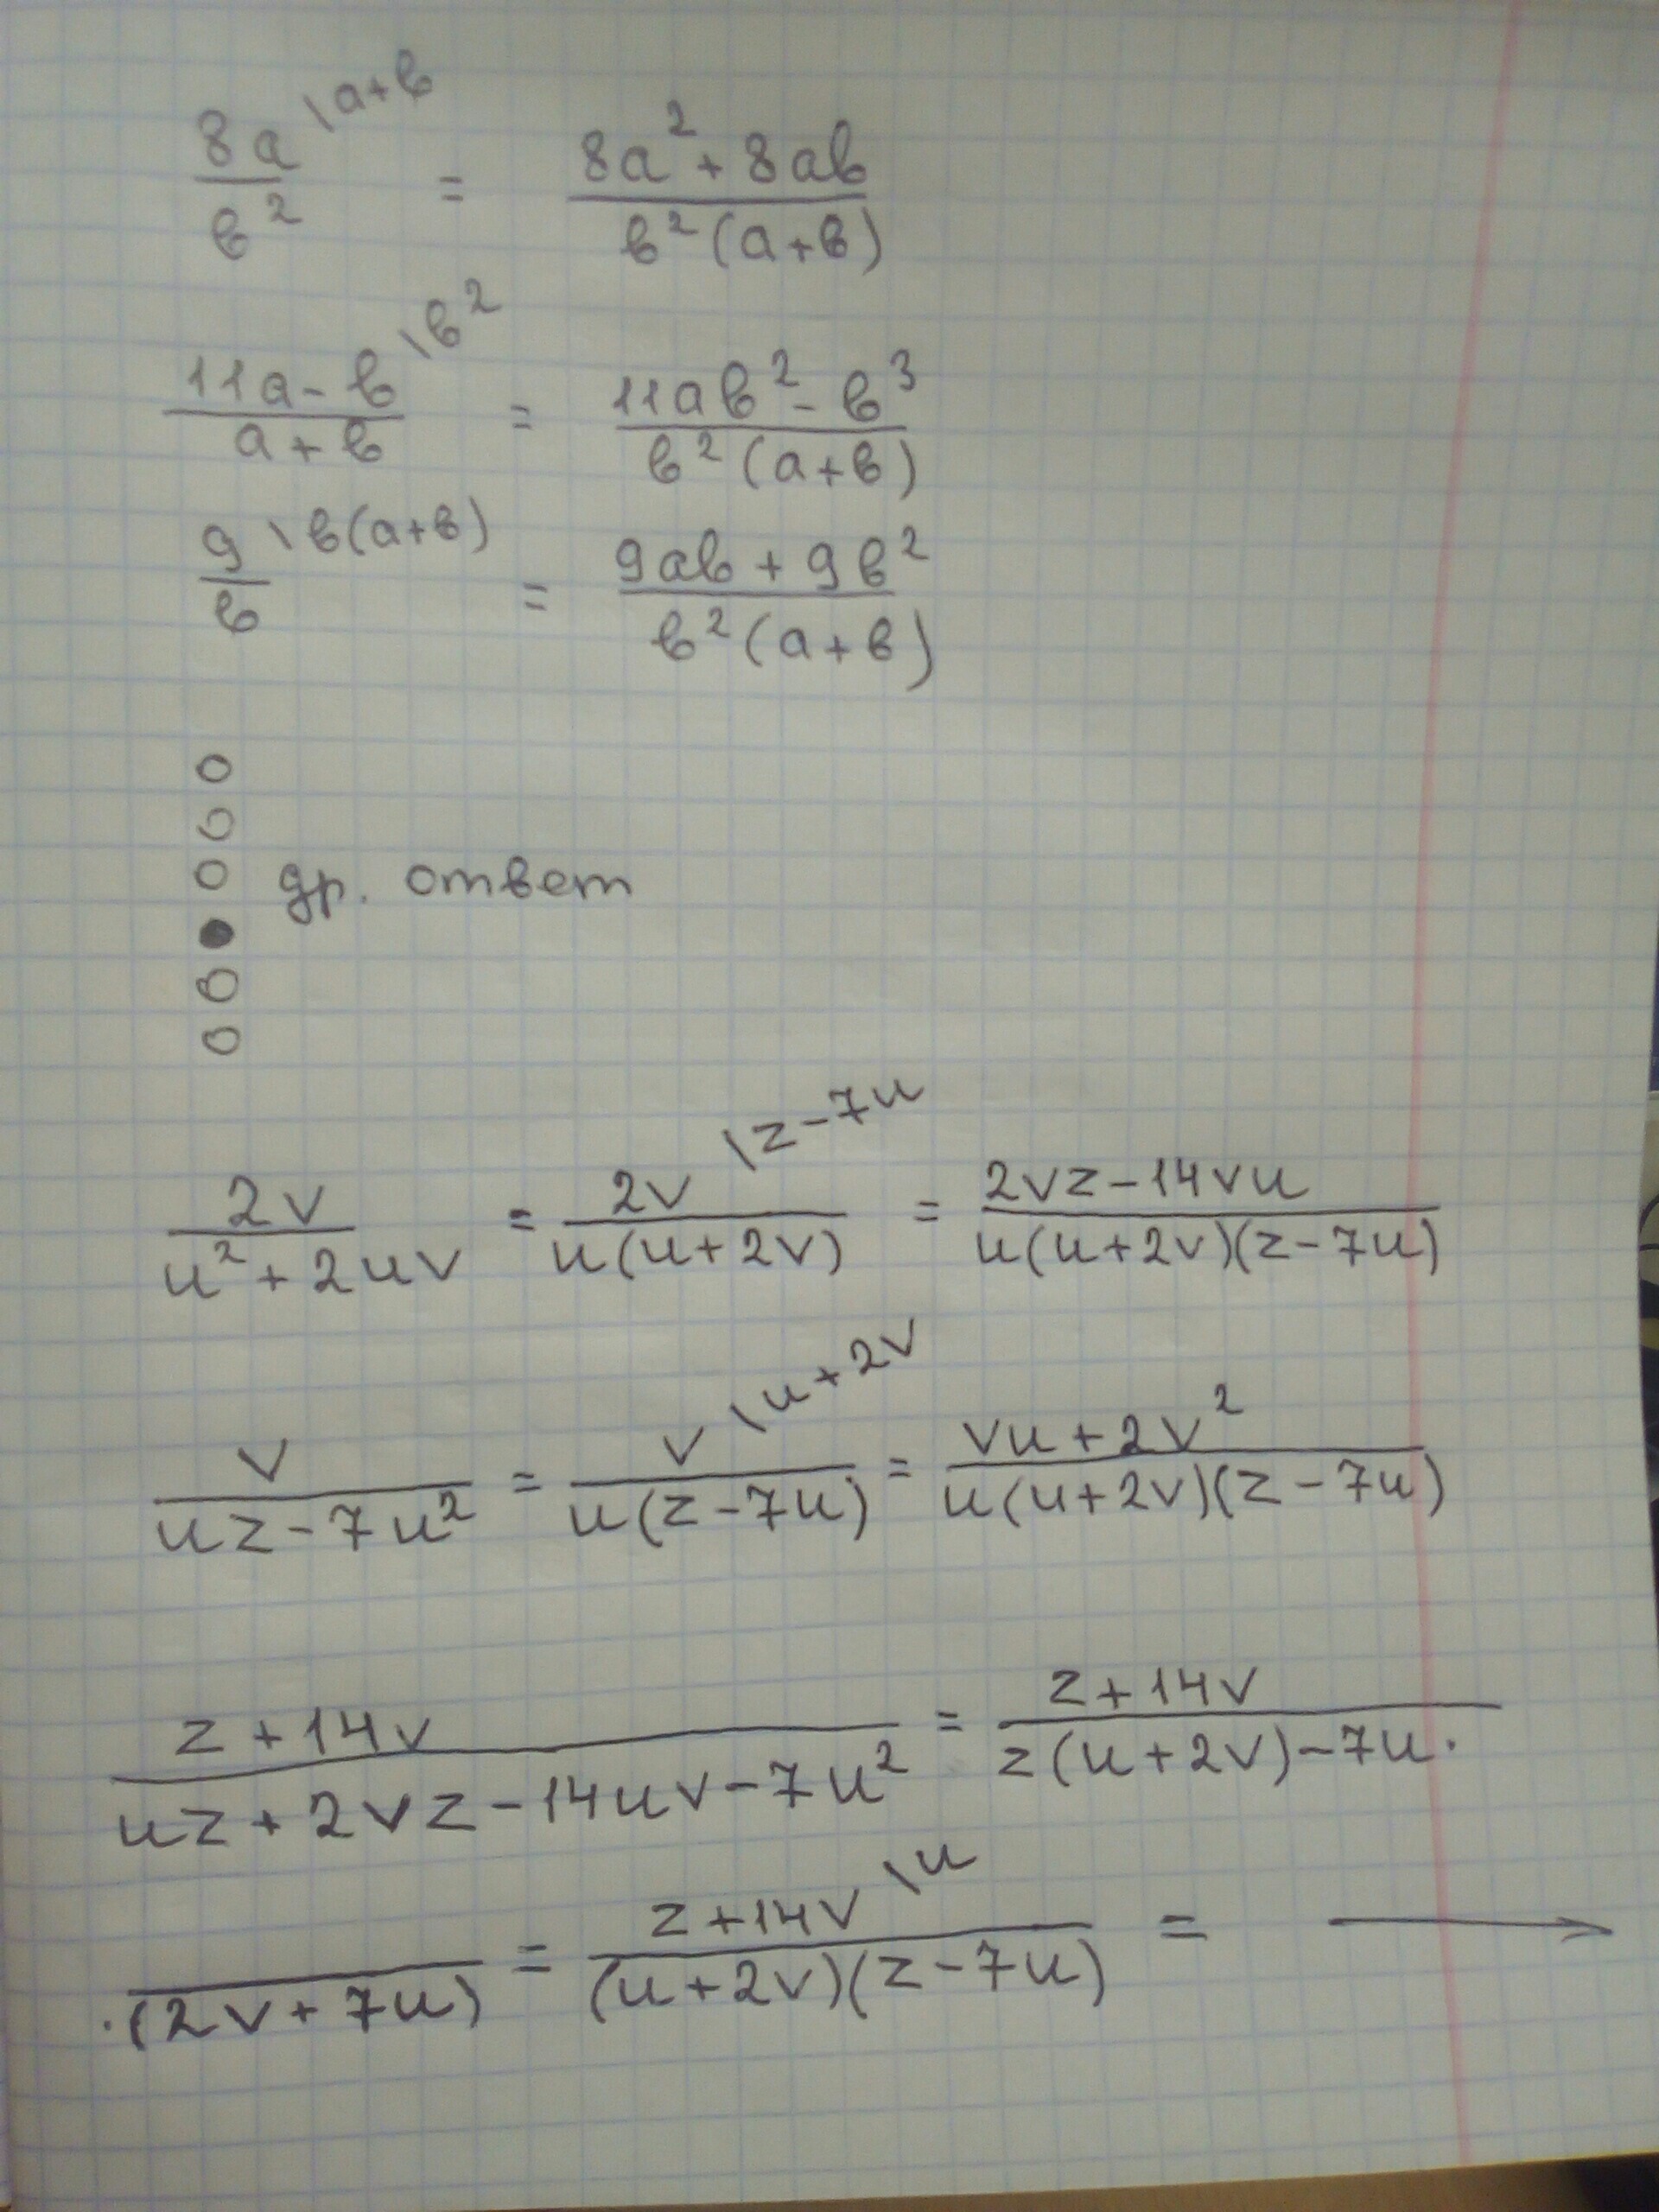 8a/в² \a+в = (8a² + 8aв)/(в²(a+в))
(11a - в)/(a+в) \в² = (11aв² - в³)/(в²(a+в))
9/в \в(a+в) = (9aв + 9в²)/(в²(a+в))
др. ответ
2v/(u²+2uv) = 2v/(u(u+2v)) \z-7u = (2vz-14vu)/(u(u+2v)(z-7u))
v/(uz-7u²) = v/(u(z-7u)) \u+2v = (vu+2v²)/(u(u+2v)(z-7u))
(z+14v)/(uz+2vz-14uv-7u²) = (z+14v)/(z(u+2v)-7u·
·(2v+7u)) = (z+14v)/((u+2v)(z-7u)) \u = →